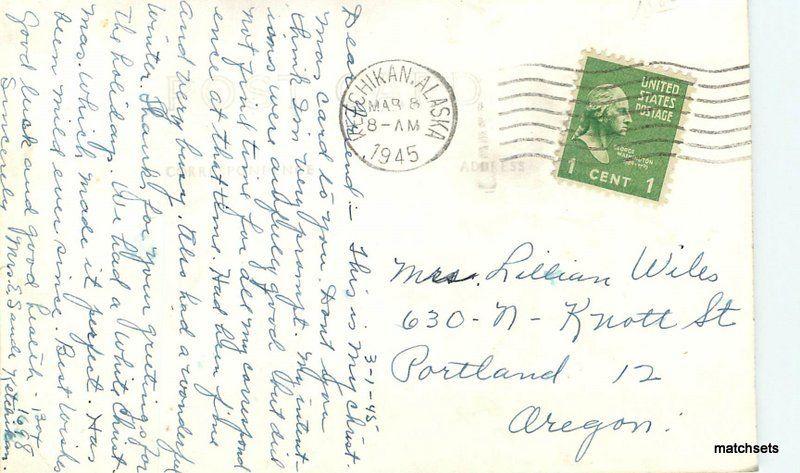 3-1-45
Dear Friend:- This is my Christ-
mas card to you. Dont you
think I'm very prompt. My intent-
ions were awfuly good but did
not find time for all my correspond
ence at that time. Had been gone
and very busy. Also had a wonderful
winter. Thanks for your greetings for
the holidays. We had a White Christ-
mas. Which made it perfect. Has
been mild ever since. Best Wishes
Good luck and good health -
Sincerely
Box
1698
Ketchikan
POST CARD
CORRESPONDENCE
ADDRESS
KETCHIKAN, ALASKA
MAR 8
8-AM
1945
UNITED
STATES
POSTAGE
GEORGE
WASHINGTON
1 CENT 1
Mrs. Lillian Wiles
630-N-Knott St
Portland 12
Oregon.
matchsets